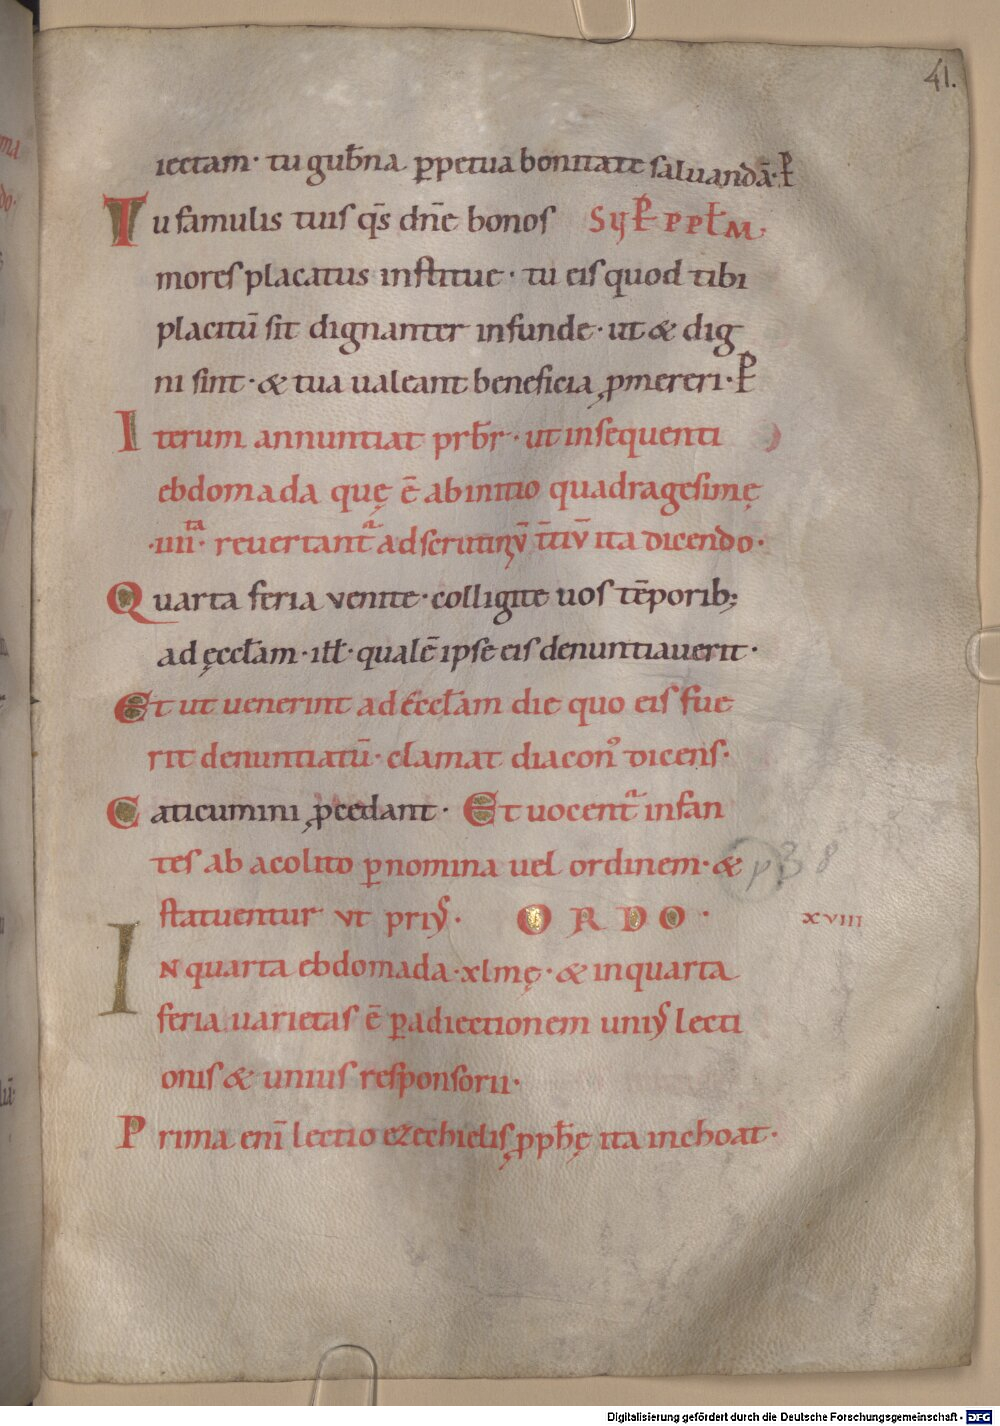 41.
iectam· tu gub̄na p̱petua bonitate saluandā· P̱
Tu famulis tuis q̄s dn̄e bonos SUP̱ PPL̄M.
mores placatus institue· tu eis quod tibi
placitū sit dignanter infunde· ut & dig
ni sint· & tua ualeant beneficia ꝓmereri· P̱
Iterum annuntiat prb̄r· ut insequenti
ebdomada quę ē ab initio quadragesimę
·IIII·ta reuertant̄ ad scrutiniū t̄tiū ita dicendo·
Quarta feria venite· colligite uos tēporib;
ad ęccl̄am· ill̄· qualē ipse eis denuntiauerit·
Et ut uenerint ad ęccl̄am die quo eis fue
rit denuntiatū· clamat diacon᾽ dicens·
Caticumini ꝓcedant· Et uocent̄ infan
tes ab acolito p̱ nomina uel ordinem· &
statuentur vt pri᾽· ORDO· XVIII
IN quarta ebdomada· xlmę· & in quarta
feria uarietas ē p̱ adiectionem uni᾽ lecti
onis & unius responsorii·
Prima eni lectio ezechielis ꝓph̄ę ita inchoat·
Digitalisierung gefördert durch die Deutsche Forschungsgemeinschaft - DFG